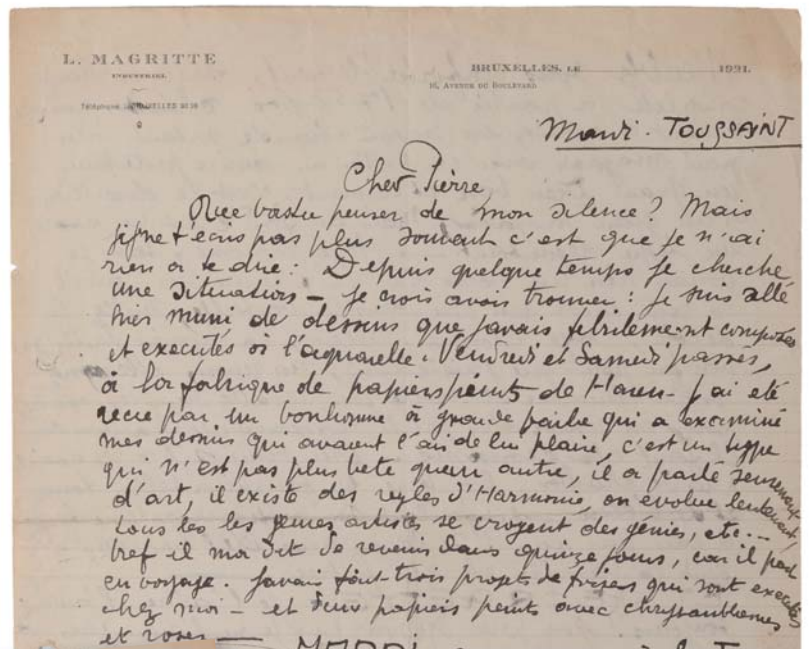 L. MAGRITTE
INDUSTRIEL
BRUXELLES, LE 1921.
16, AVENUE DU BOULEVARD
Téléphone BRUXELLES
Mardi - TOUSSAINT
Cher Pierre
Que vas tu penser de mon silence? Mais
si je ne t'écris pas plus souvent c'est que je n'ai
rien à te dire : Depuis quelque temps je cherche
une situation - je crois avoir trouver : je suis allé
hier muni de dessins que javais fébrilement composés
et executés à l'aquarelle. Vendredi et Samedi passés,
à la fabrique de papiers peints de Haren - j'ai été
recu par un bonhomme à grande barbe qui a examiné
mes dessins qui avaient l'air de lui plaire, c'est un type
qui n'est pas plus bete qu'un autre, il a parlé
d'art, il existe des regles d'Harmonie, on évolue lentement,
tous les les jeunes artistes se croyent des génies, etc...
bref il m'a dit de revenir dans quinze jours, car il part
en voyage. Javais fait trois projets de frises qui sont executés
chez moi - et deux papiers peints avec chrysanthemes
et roses —
MARDI